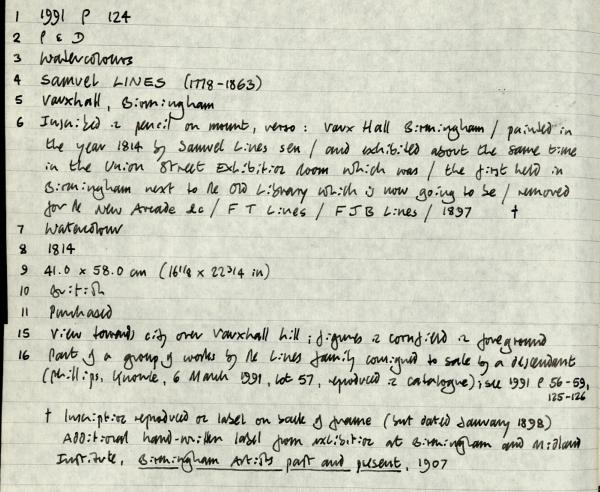 1 1991 P 124
2 P & D
3 Watercolours
4 Samuel LINES (1778-1863)
5 Vauxhall, Birmingham
6 Inscribed in pencil on mount, verso: Vaux Hall Birmingham / painted in
the year 1814 by Samuel Lines sen / and exhibited about the same time
in the Union Street Exhibition Room which was / the first held in
Birmingham next to the Old Library which is now going to be / removed
for the New Arcade &c / F T Lines / F J B Lines / 1897 †
7 Watercolour
8 1814
9 41.0 x 58.0 cm (16 1/8 x 22 3/4 in)
10 British
11 Purchased
15 View towards city over Vauxhall hill; figures in cornfield in foreground
16 Part of a group of works by the Lines family consigned to sale by a descendant
(Phillips, Knowle, 6 March 1991, lot 57, reproduced in catalogue); see 1991 P 56-59,
125-126
† Inscription reproduced on label on back of frame (but dated January 1898)
Additional hand-written label from exhibition at Birmingham and Midland
Institute, Birmingham Artists past and present, 1907